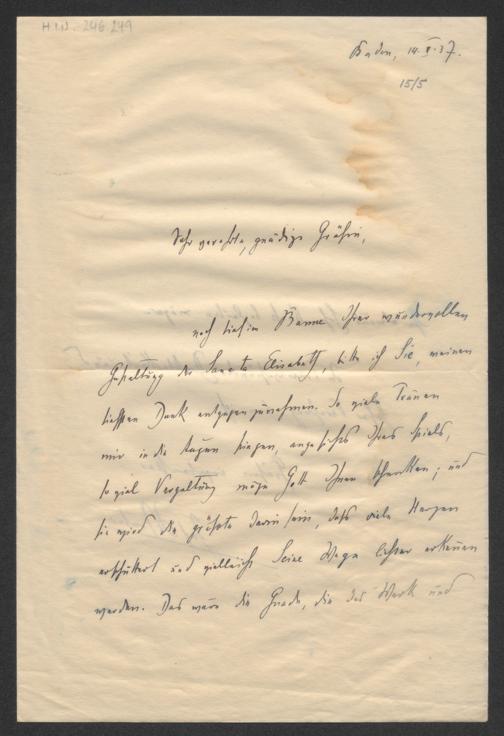 H.I.N. 246.249
Baden, 14.V.37.
15/5
Sehr verehrte, gnädige Gräfin,
noch tief im Banne Ihrer wundervollen
Gestaltung der Sancta Elisabeth, bitte ich Sie, meinen
tiefsten Dank entgegenzunehmen. So viele Tränen
mir in die Augen stiegen, angesichts Ihres Spiels,
so viel Vergeltung möge Gott Ihnen schenken; und
sie wird die größte darin sein, dass viele Herzen
erschüttert und vielleicht Seine Wege lichter erkennen
werden. Das wäre die Gnade, die das Werk und